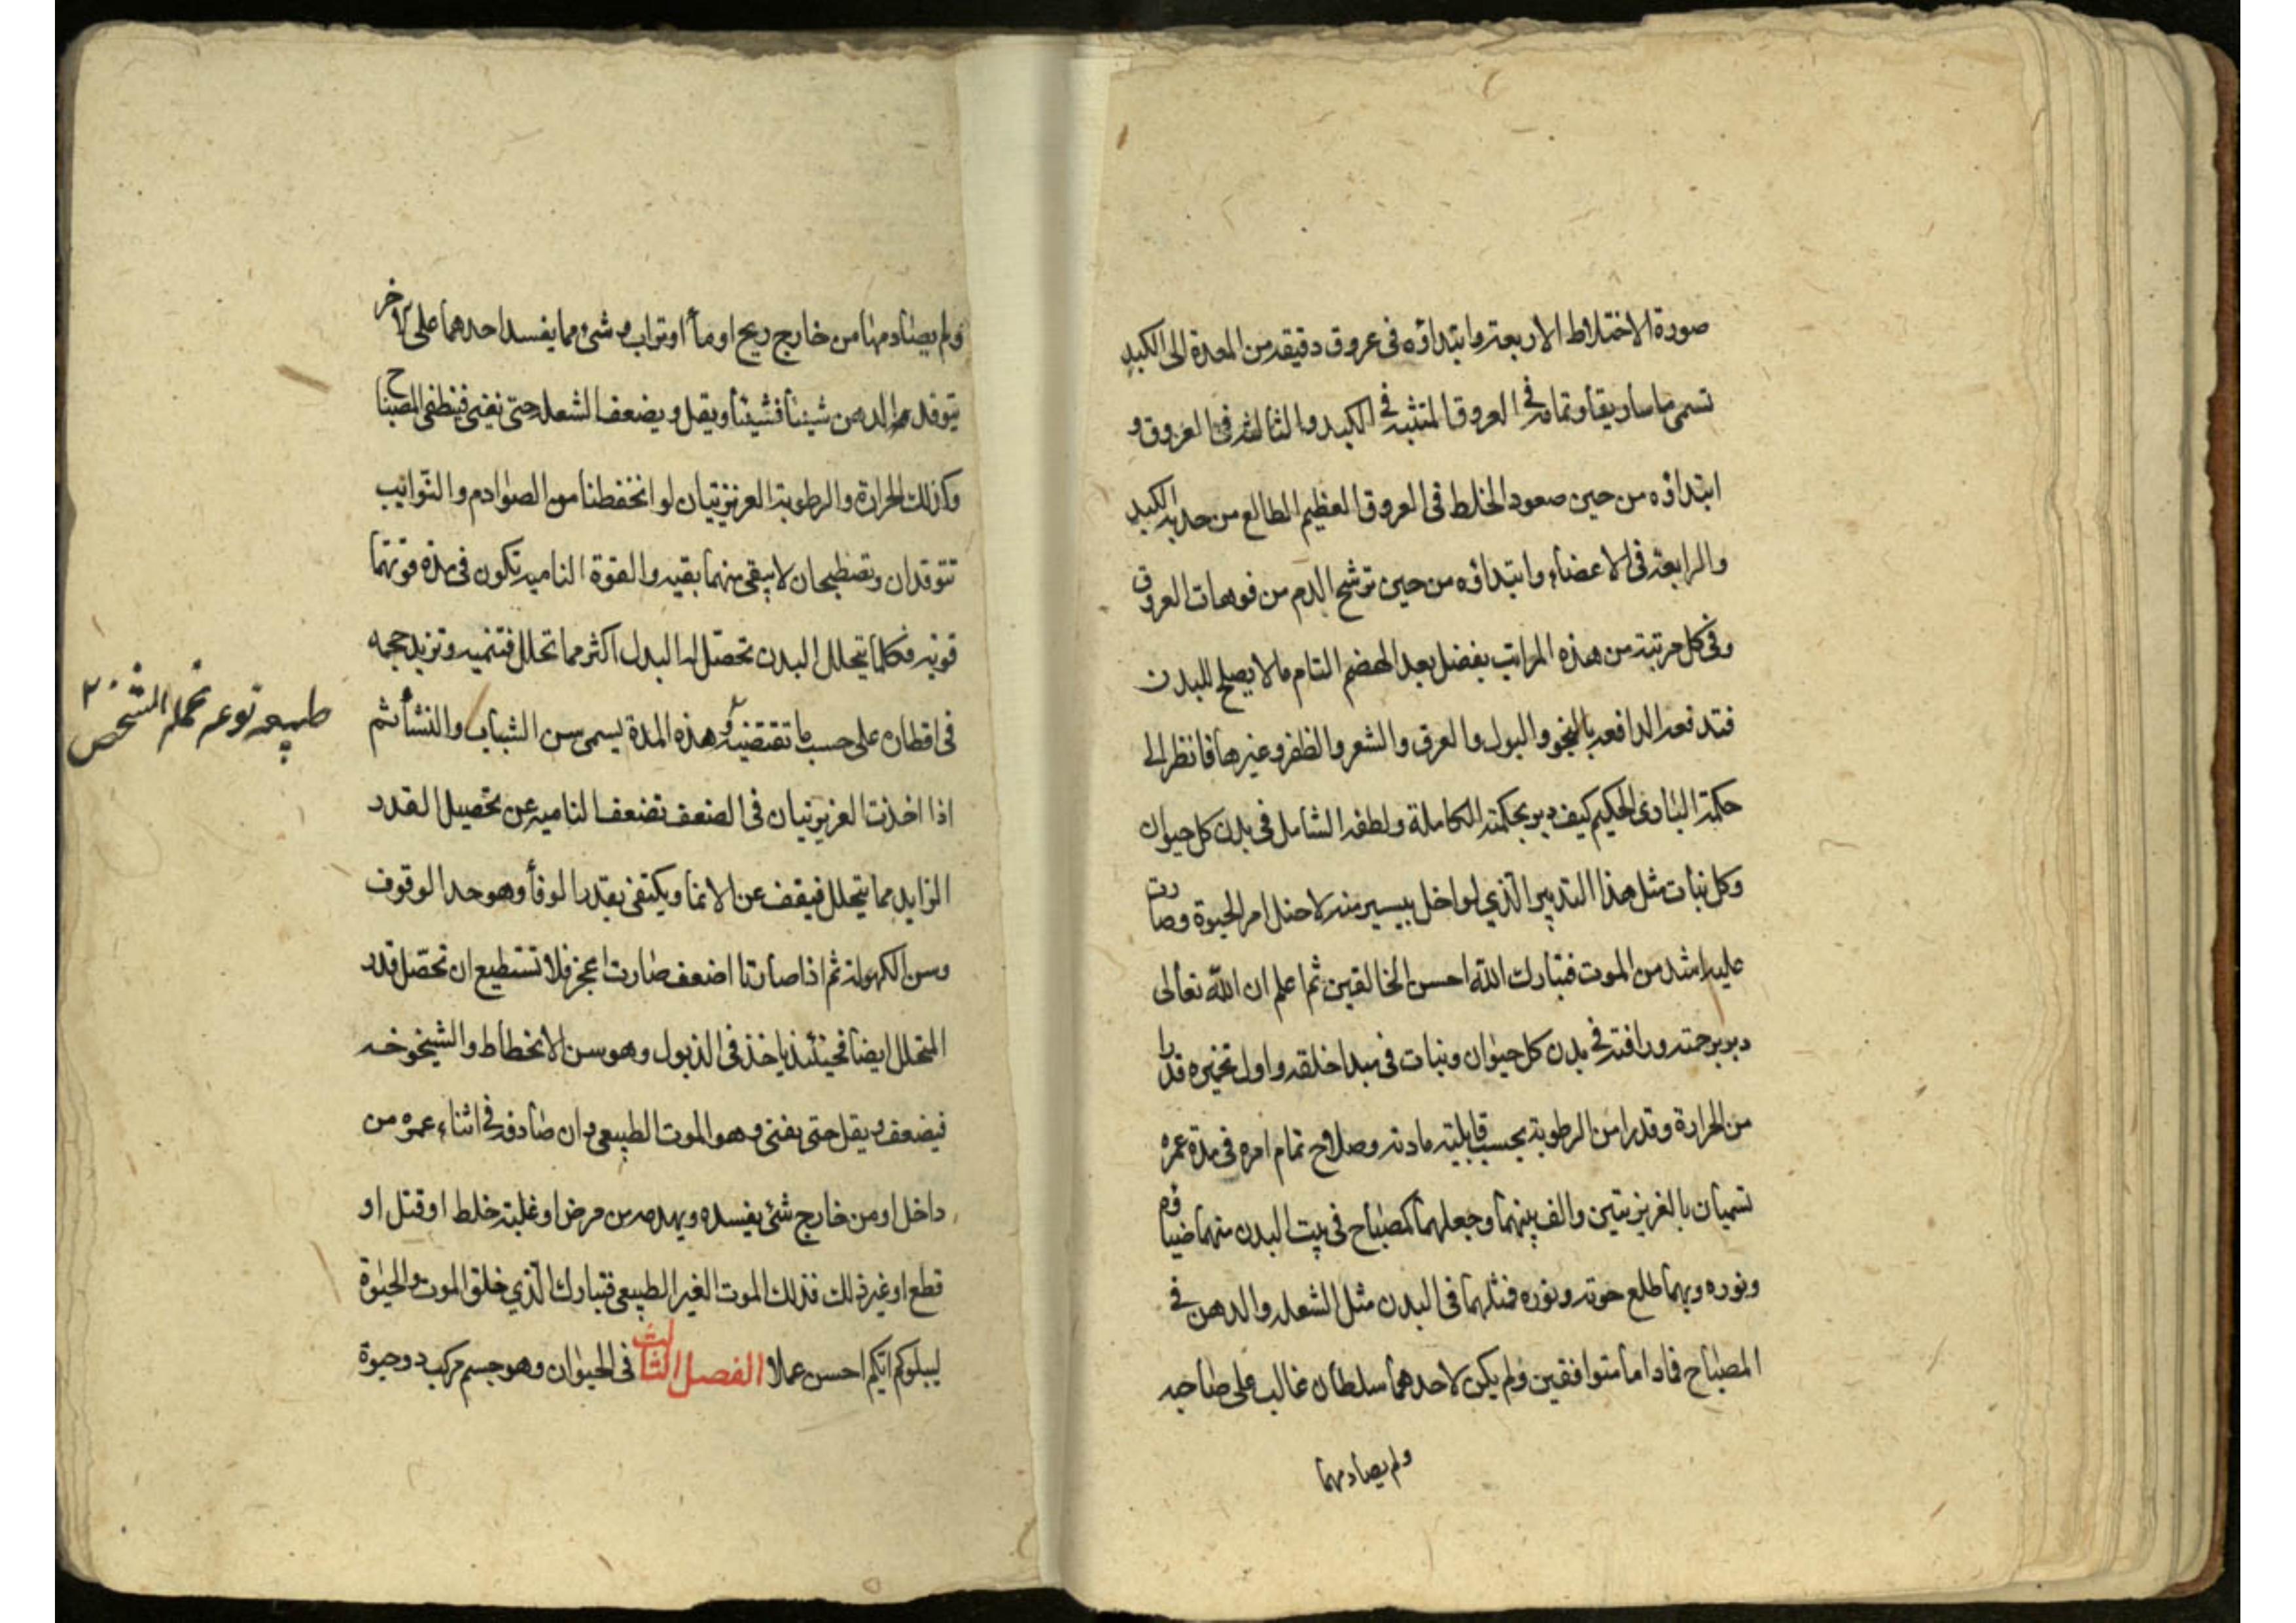 صورة الاختلاط الاربعة وابتداؤه فى عروق دقيقة من المعدة الى الكبد
تسمى ماساريقا وتمامه فى العروق المتشبه فى الكبد والثالثة فى العروق و
ابتداؤه من حين صعود الخلط فى العروق العظيم الطالع من حدبة الكبد
والرابعة فى الاعضاء وابتداؤه من حين ترشح الدم من فوهات العروق
وفى كل مرتبة من هذه المراتب يفضل بعد الهضم التام ما لا يصلح للبدن
فتدفعه الدافعة بالنجو والبول والعرق والشعر والظفر وغيرها فانظر الى
حكمة البارى الحكيم كيف دبر بحكمته الكاملة ولطفه الشامل فى بدن كل حيوان
وكل نبات مثل هذا التدبير الذي لو اخل بيسير منه لاختل امر الحيوة وصارت
عليه اشد من الموت فتبارك الله احسن الخالقين ثم اعلم ان الله تعالى
دبر برحمته ورافته فى بدن كل حيوان ونبات فى مبدا خلقه واول تخميره قدرا
من الحرارة وقدرا من الرطوبة بحسب قابلية مادته وصلاح تمام امره فى مدة عمره
تسميان بالغريزيتين والف بينهما وجعلهما كمصباح فى بيت البدن منهما ضياؤه
ونوره وبهما طلع حوته ونوره فمثلهما فى البدن مثل الشعلة والدهن فى
المصباح فاداما متوافقين ولم يكن لاحدهما سلطان غالب على صاحبه
ولم يصادمهما
ولم يصادمهما من خارج ريح او ماء او تراب و شئ مما يفسد احدهما على الاخر
يتوقد الدهن شيئا فشيئا ويقل ويضعف الشعلة حتى تفنى فينطفى المصباح
وكذلك الحرارة والرطوبة الغريزيتيان لو انحفظتا من الصوادم والنوائب
تتوقدان وتضطبحان لا يبقى منهما بقيه والقوة الناميه تكون فى مدة قوتهما
قويه فكلما يتحلل البدن تحصل له البدل اكثر مما تحلل فتنميه وتزيد حجمه
فى اقطاره على حسب ما تقتضيه و هذه المدة يسمى سن الشباب والنشأ ثم
طبيعه نوعه نحمله الشخص
اذا اخذت الغريزيتيان فى الضعف تضعف الناميه عن تحصيل القدر
الزايد مما يتحلل فيقف عن الانما ويكتفى بقدر الوفا وهو حد الوقوف
وسن الكهوله ثم اذا صارتا اضعف صارت اعجز فلا تستطيع ان تحصل قدر
المتحلل ايضا فحينئذ ياخذ فى الذبول وهو سن الانحطاط والشيخوخه
فيضعف و يقل حتى يفنى وهو الموت الطبيعى و ان صادفه فى اثناء عمره من
داخل او من خارج شئ يفسده ويهدمه من مرض او غلبة خلط او قتل او
قطع او غير ذلك فذلك الموت الغير الطبيعى فتبارك الذي خلق الموت والحيوة
ليبلوكم ايكم احسن عملا الفصل الثالث فى الحيوان وهو جسم مركب ذو حيوة